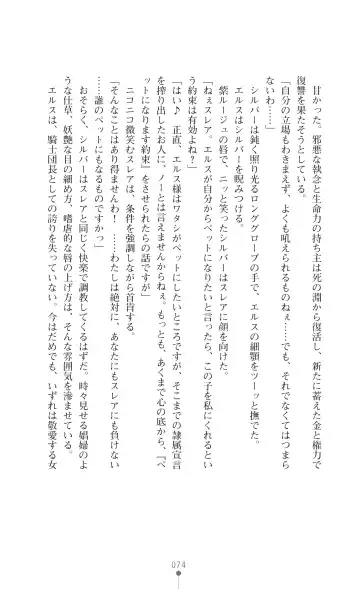 甘かった。邪悪な執念と生命力の持ち主は死の淵から復活し、新たに蓄えた金と権力で
復讐を果たそうとしている。
「自分の立場もわきまえず、よくも吼えられるものねぇ……でも、それでなくてはつまら
ないわ……」
シルバーは鈍く照り光るロンググローブの手で、エルスの細顎をツーッと撫でた。
エルスはシルバーを睨みつける。
紫ルージュの唇で、ニッと笑ったシルバーはスレアに顔を向けた。
「ねぇスレア。エルスが自分からペットになりたいと言ったら、この子を私にくれるとい
う約束は有効よね?」
「はい♪ 正直、エルス様はワタシがペットにしたいところですが、そこまでの隷属宣言
を搾り出したお人に、ノーとは言えませんからねぇ。もっとも、あくまで心の底から、『ペ
ットになります約束』をさせられたらの話ですが」
ニコニコ微笑むスレアは、条件を強調しながら首肯する。
「そんなことはあり得ませんわ!……わたしは絶対に、あなたにもスレアにも負けない
……誰のペットにもなるものですかっ」
おそらく、シルバーはスレアと同じく快楽で調教してくるはずだ。時々見せる娼婦のよ
うな仕草、妖艶な目の細め方、嗜虐的な唇の上げ方は、そんな雰囲気を滲ませている。
エルスは、騎士団長としての誇りを失っていない。今はだめでも、いずれは敬愛する女
074